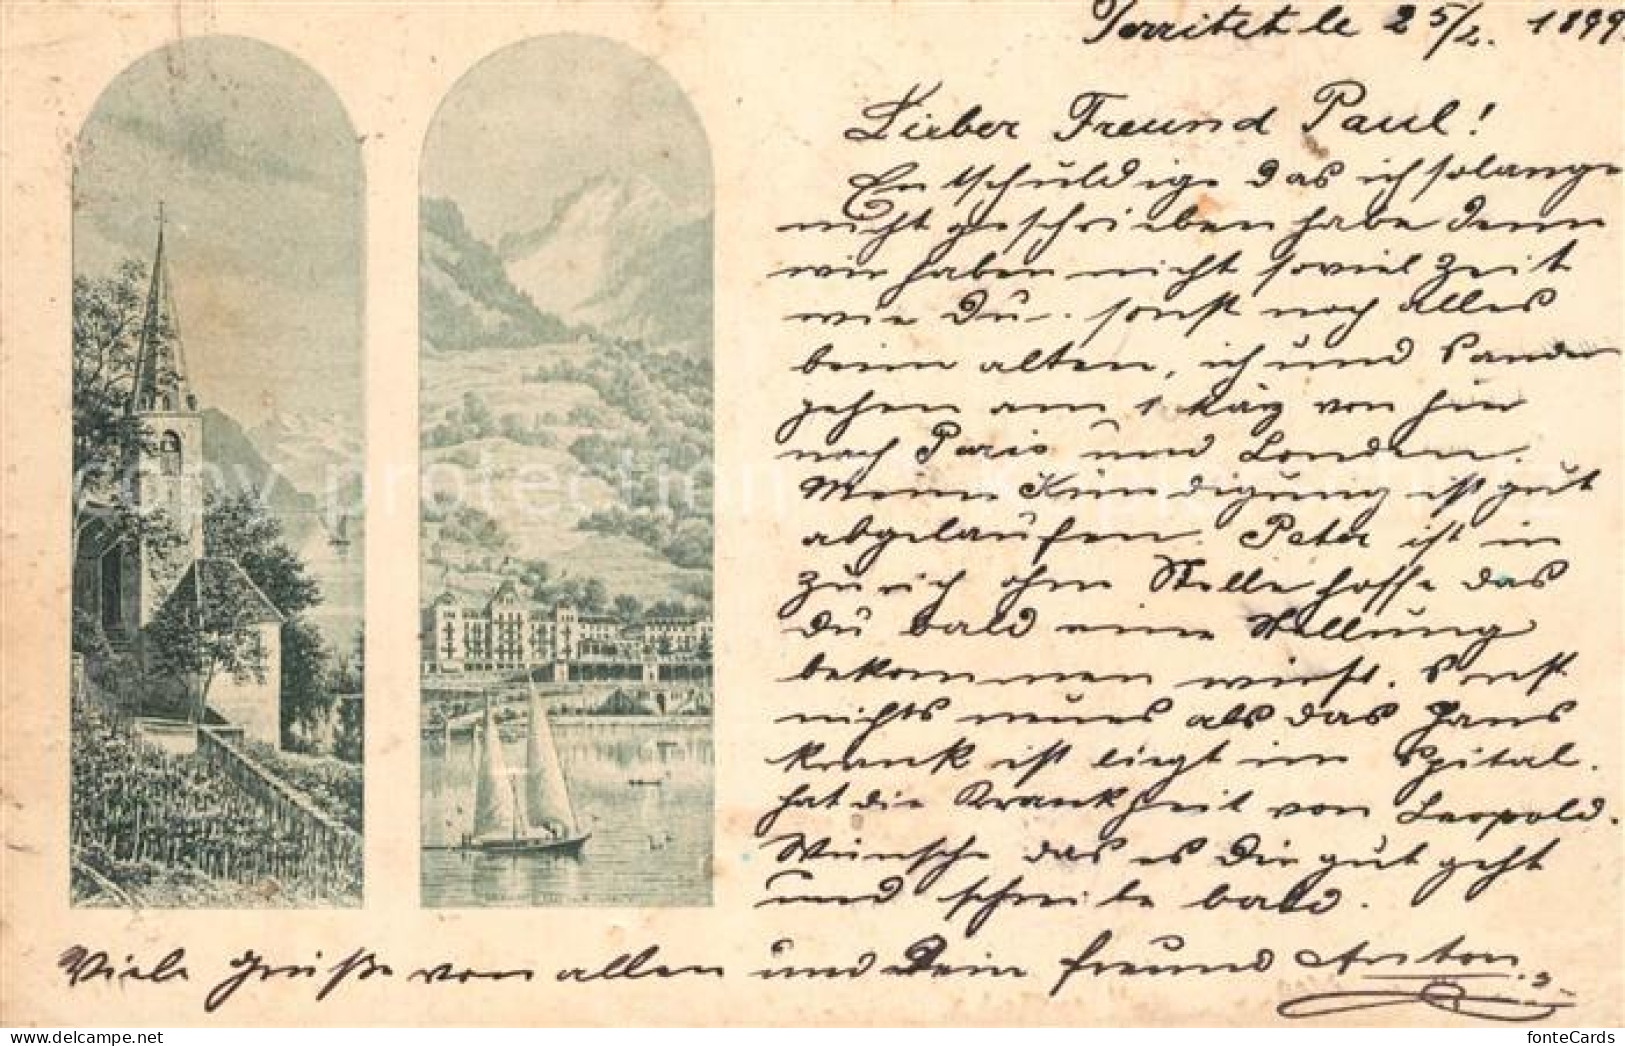 Territet le 25/2. 1899.
Lieber Freund Paul!
Entschuldige das ich solange
nicht geschrieben habe denn
wir haben nicht soviel Zeit
wie Du. sonst noch alles
beim alten, ich und Sander
gehen am 1 März von hier
nach Paris und London.
Meine Kündigung ist gut
abgelaufen. Peter ist in
Zürich ohne Stelle hoffe das
du bald eine Stellung
bekommen wirst. Sonst
nichts neues als das Hans
krank ist liegt im Spital.
hat die Krankheit von Leopold.
Wünsche das es Dir gut geht
und schreibe bald.
Viele Grüße von allen und Dein freund Anton
copy protection
fonteCards